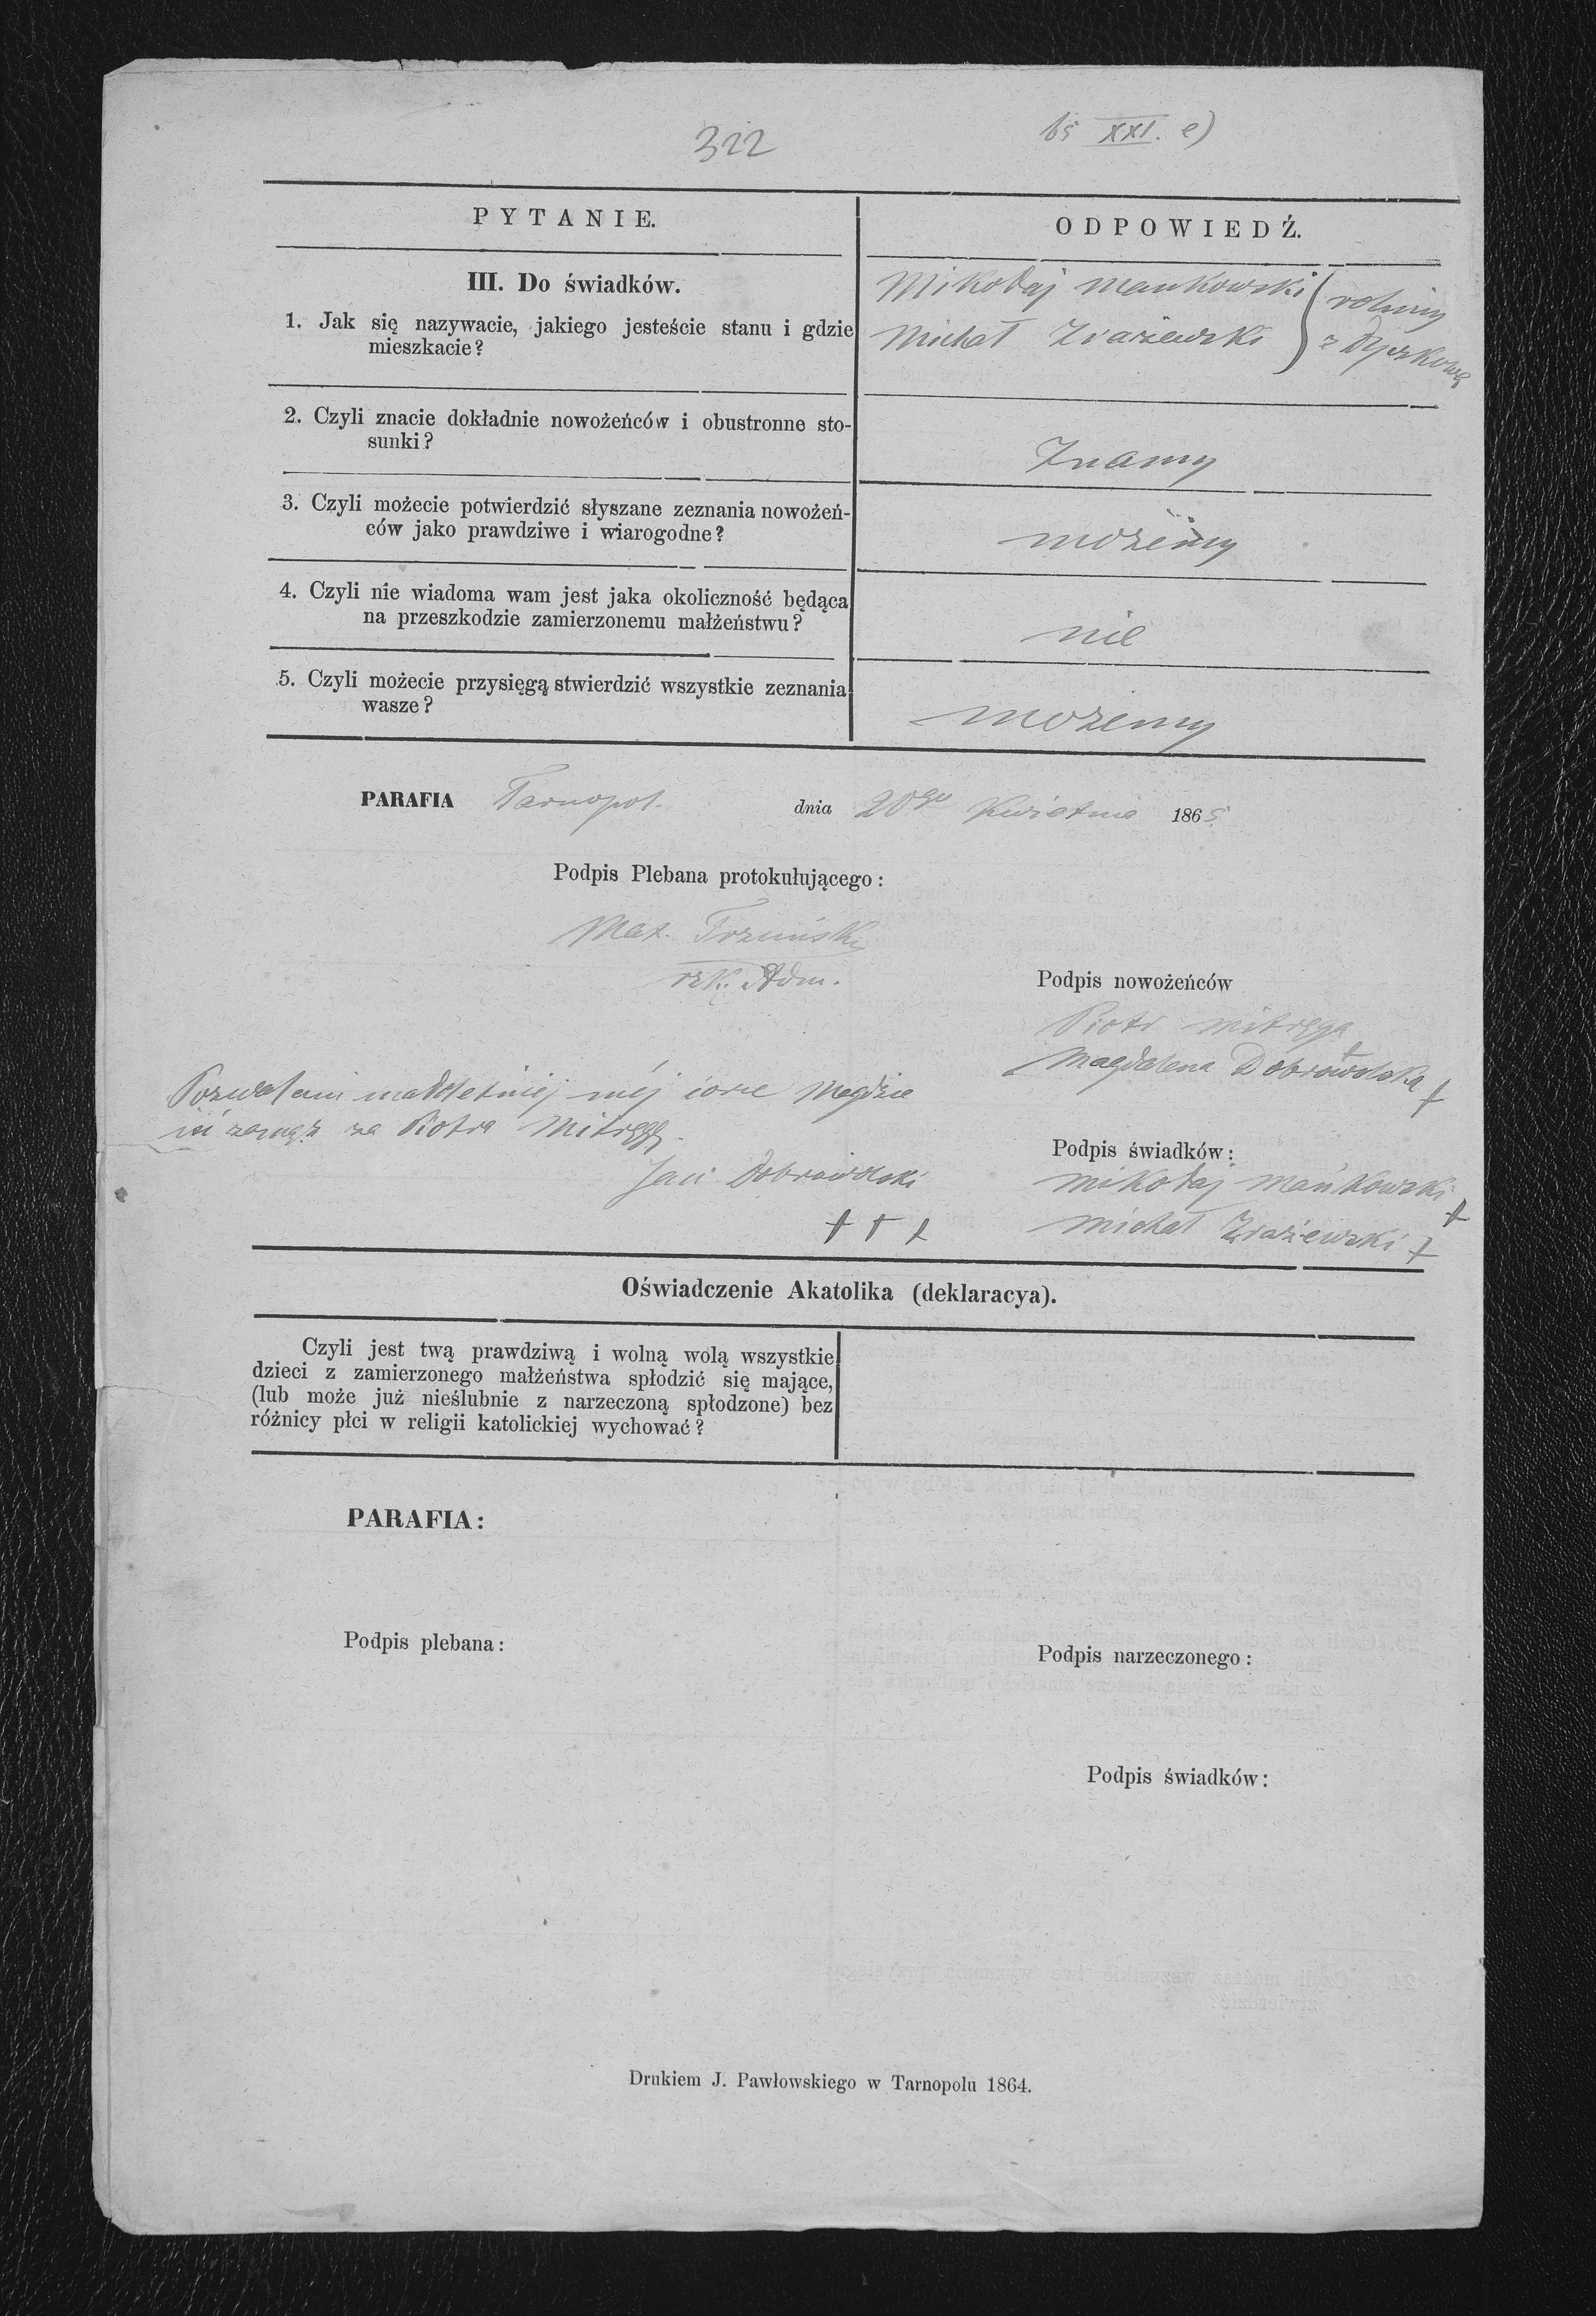 322
65 XXI. e)
PYTANIE.
ODPOWIEDŹ.
III. Do świadków.
1. Jak się nazywacie, jakiego jesteście stanu i gdzie
mieszkacie?
Mikołaj Mankowski
Michał Zrażewski
rolnicy
z Dyczkowa
2. Czyli znacie dokładnie nowożeńców i obustronne sto-
sunki?
Znamy
3. Czyli możecie potwierdzić słyszane zeznania nowożeń-
ców jako prawdziwe i wiarogodne?
możemy
4. Czyli nie wiadoma wam jest jaka okoliczność będąca
na przeszkodzie zamierzonemu małżeństwu?
nie
5. Czyli możecie przysięgą stwierdzić wszystkie zeznania
wasze?
możemy
PARAFIA Tarnopol. dnia 20go Kwietnia 1865
Podpis Plebana protokułującego:
Max.
rzk. Adm.
Podpis nowożeńców
Piotr Mitręga
Magdalena Dobrowolska +
Pozwalam małoletniej mej córce Magdzie
iść zamąż za Piotra Mitręgę.
Jan Dobrowolski
+ + +
Podpis świadków:
Mikołaj Mańkowski +
Michał Zrażewski +
Oświadczenie Akatolika (deklaracya).
Czyli jest twą prawdziwą i wolną wolą wszystkie
dzieci z zamierzonego małżeństwa spłodzić się mające,
(lub może już nieślubnie z narzeczoną spłodzone) bez
różnicy płci w religii katolickiej wychować?
PARAFIA:
Podpis plebana:
Podpis narzeczonego:
Podpis świadków:
Drukiem J. Pawłowskiego w Tarnopolu 1864.